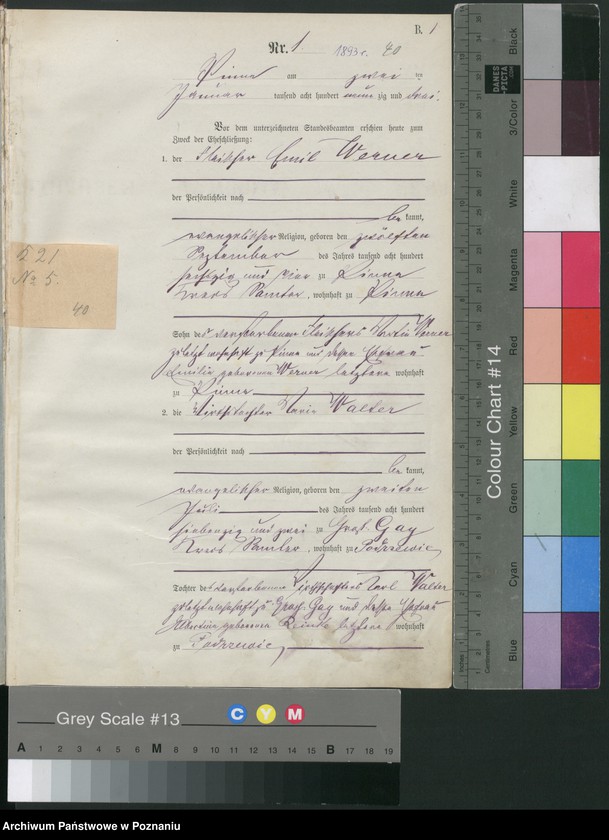 B. 1
Nr. 1 1893 r. 40
Pinne am zwei ten
Januar tausend acht hundert neun zig und drei.
Vor dem unterzeichneten Standesbeamten erschien heute zum
Zweck der Eheschließung:
1. der Fleischer Emil Werner
der Persönlichkeit nach
be kannt,
evangelischer Religion, geboren den zwölften
September des Jahres tausend acht hundert
sechszig und vier zu Pinne
Kreis Samter, wohnhaft zu Pinne
Sohn des verstorbenen Fleischers Werner
zuletzt wohnhaft zu Pinne und dessen Ehefrau
Emilie geborenen Werner letztere wohnhaft
zu Pinne
2. die Wirthstochter Maria Walter
der Persönlichkeit nach
be kannt,
evangelischer Religion, geboren den zweiten
Juli des Jahres tausend acht hundert
siebenzig und zwei zu Groß Gay
Kreis Samter, wohnhaft zu Podrzewie
Tochter des verstorbenen Karl Walter
zuletzt wohnhaft zu Groß Gay und dessen Ehefrau
Albertine geborenen letztere wohnhaft
zu Podrzewie,
§ 21
No 5.
40
DANES
PICTA
.COM
Colour Chart #14
Black
3/Color
White
Magenta
Red
Yellow
Green
Cyan
Blue
Inches
Centimetres
Grey Scale #13
C Y M
A 1 2 3 4 5 6 M 8 9 10 11 12 13 14 15 B 17 18 19
Archiwum Państwowe w Poznaniu